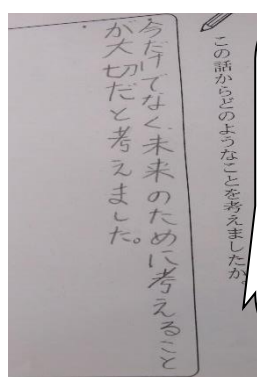 この話からどのようなことを考えましたか。
今だけでなく、未来のために考えること
が大切だと考えました。